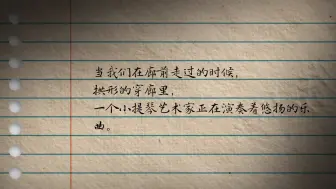 当我们在廊前走过的时候，
拱形的穿廊里，
一个小提琴艺术家正在演奏着悠扬的乐
曲。